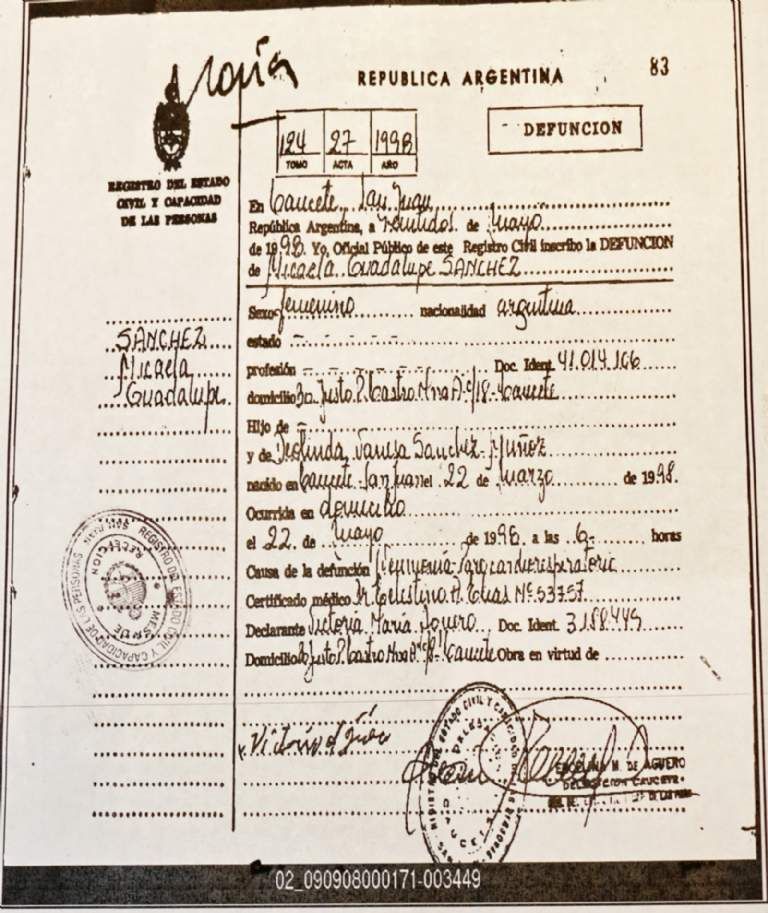 Copia
REPUBLICA ARGENTINA
83
DEFUNCION
124 27 1998
TOMO ACTA AÑO
REGISTRO DEL ESTADO
CIVIL Y CAPACIDAD
DE LAS PERSONAS
En Caucete San Juan
República Argentina, a veintidos de Mayo
de 1998. Yo, Oficial Público de este Registro Civil inscribo la DEFUNCION
de Micaela Guadalupe SANCHEZ
SANCHEZ
Micaela
Guadalupe
Sexo femenino nacionalidad argentina
estado
profesión Doc. Ident. 41.014.166
domicilio Bo. Justo P. Castro Mna A c/18 - Caucete
Hijo de -
y de Deolinda Vanesa Sanchez - Muñoz
nacido en Caucete - San Juan el 22 de Marzo de 1998.
Ocurrida en domicilio
el 22 de Mayo de 1998 a las 6 horas
Causa de la defunción Neumonía - Paro cardiorespiratorio
Certificado médico Dr. Celestino A. Elias Nº 53757
Declarante Victoria María Aguero Doc. Ident. 3.188.445
Domicilio Bo Justo P. Castro Mna A c/18 - Caucete Obra en virtud de
REGISTRO DEL ESTADO CIVIL Y CAPACIDAD DE LAS PERSONAS SAN JUAN
MESA DE RECEPCION
M. DE AGUERO
02_090908000171-003449